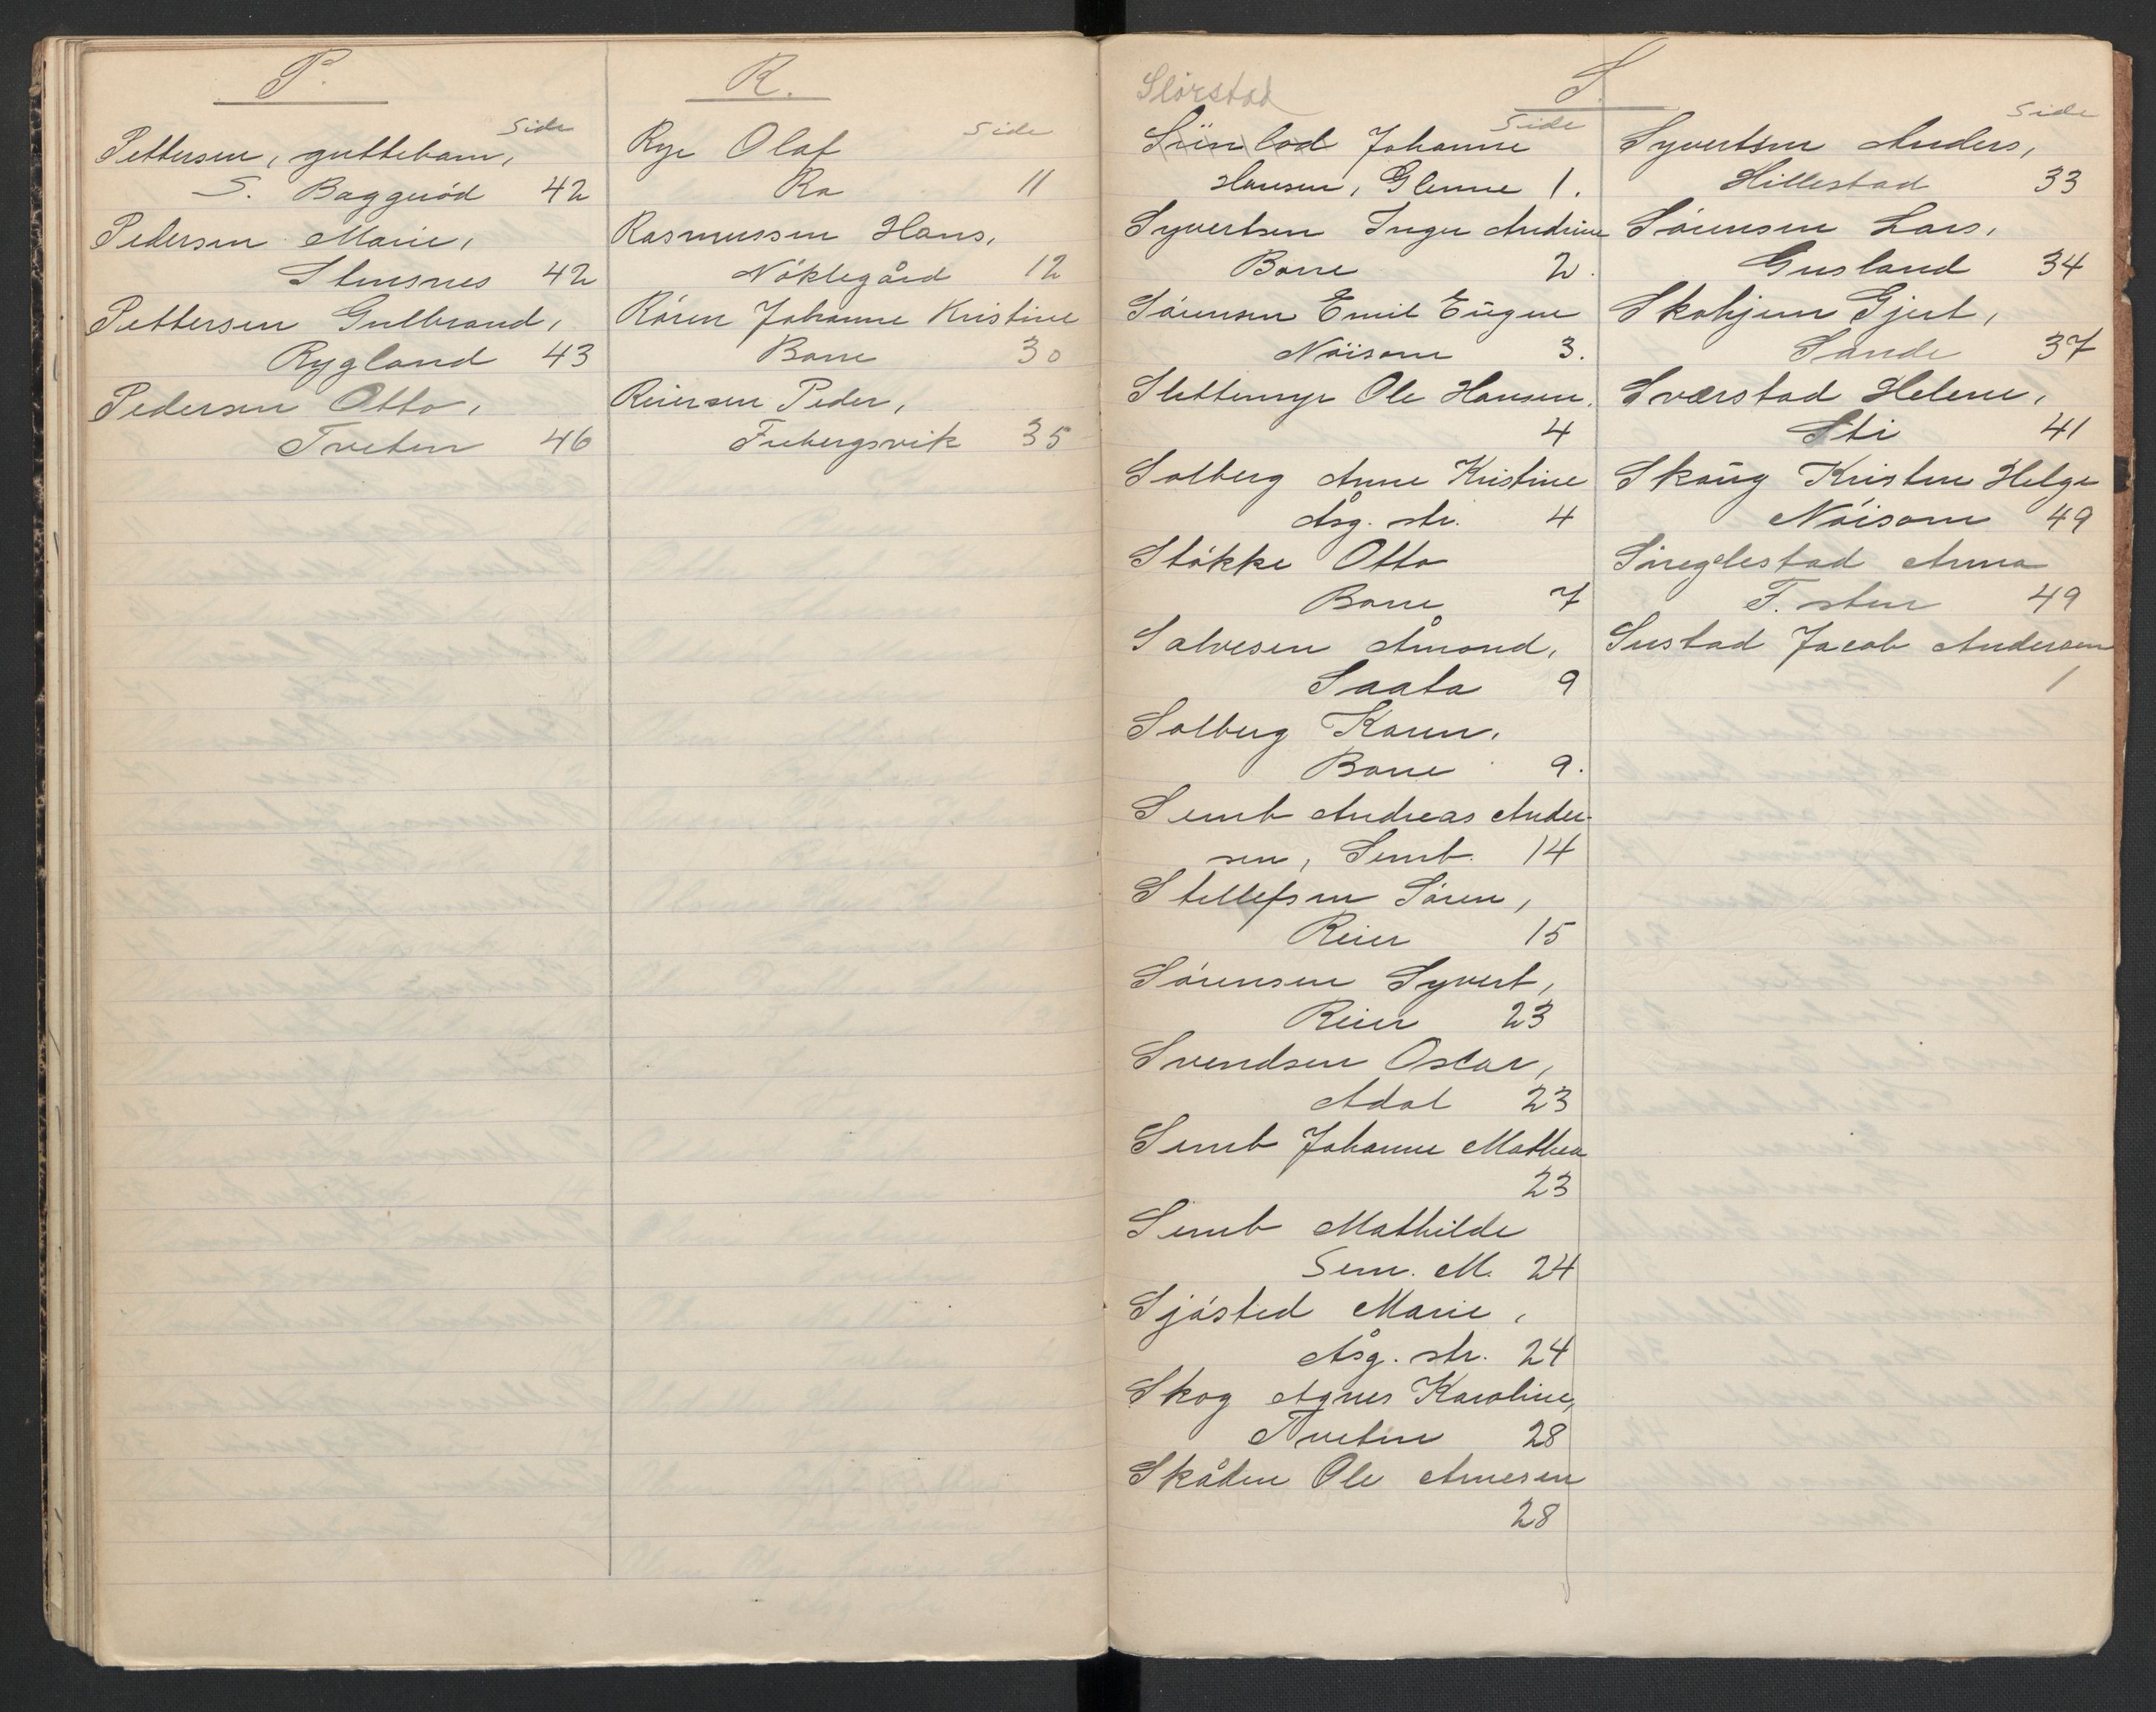 P.
Side
Pettersen, guttebarn,
S. Baggerød 42
Pedersen Marie,
Stensnes 42
Pettersen Gulbrand,
Rygland 43
Pedersen Otto,
Tveten 46
R.
Side
Rye Olaf
Ra 11
Rasmussen Hans,
Nøklegård 12
Røren Johanne Kristine
Borre 30
Reiersen Peder,
Frebergsvik 35
S.
Slørstad
Side
Johanne
Hansen, Glenne 1.
Syvertsen Inger Andrine
Borre 2.
Sørensen Emil Eugen
Nøisom 3.
Slettemyr Ole Hansen.
4
Solberg Anne Kristine
Åsg. str. 4
Støkke Otto
Borre 7
Salvesen Åmond,
Saata 9
Solberg Karen,
Borre 9.
Semb Andreas Ander-
sen, Semb. 14
Stellefsen Søren,
Reier 15
Sørensen Syvert,
Reier 23
Svendsen Oscar,
Adal 23
Semb Johanne Mathea
23
Semb Mathilde
Sem. M. 24
Sjøsted Marie,
Åsg. str. 24
Skog Agnes Karoline,
Tveten 28
Skåden Ole Arnesen
28
Side
Syvertsen Anders,
Hillestad 33
Sørensen Lars,
Gusland 34
Skohjem Gjert,
Sande 37
Sværstad Helene,
Sti 41
Skaug Kristen Helge
Nøisom 49
Anna
F. sten 49
Sustad Jacob Andersen
1